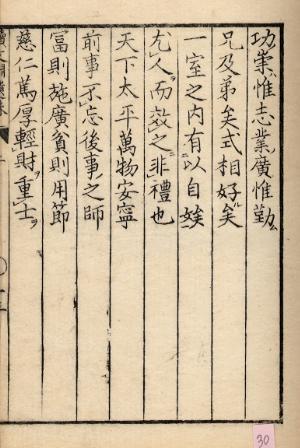 功崇惟志業廣惟勤
兄及弟矣式相好矣
一室之內有以自娛
尤人而效之非禮也
天下太平萬物安寧
前事不忘後事之師
富則施廣貧則用節
慈仁篤厚輕財重士
30